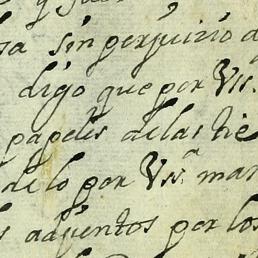 sa sin perjuizio d
digo que por Vs.
papeles de las tie
de lo por Vs.ª man
s adjuntos por los